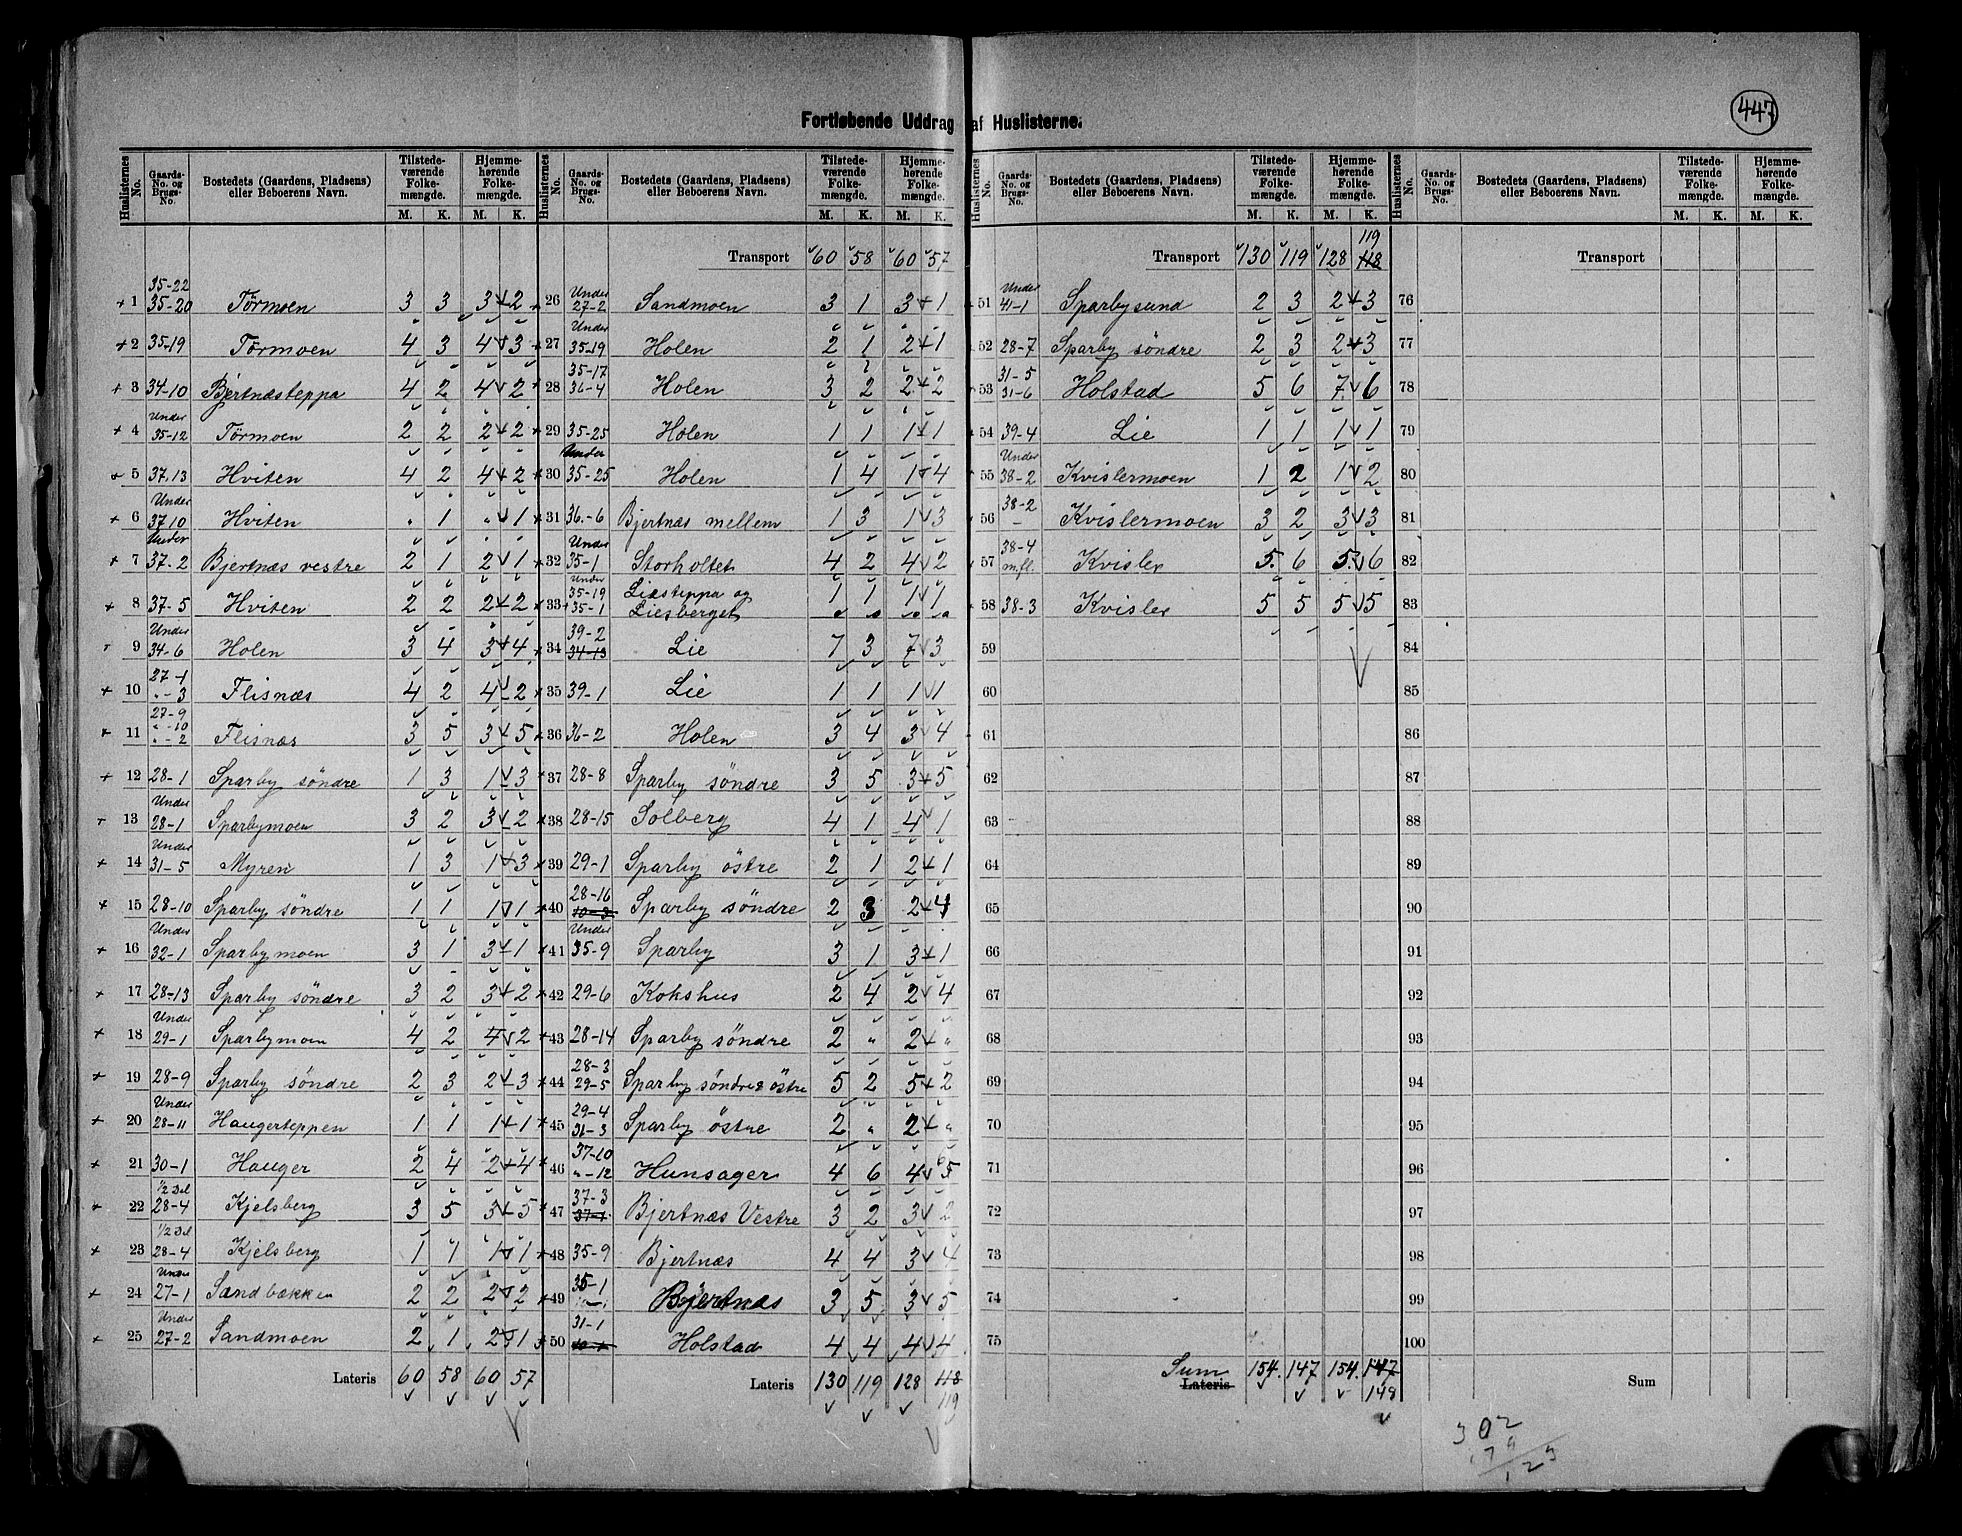 447
Fortløbende Uddrag af Huslisterne.
Huslisternes No. Gaards-No. og Brugs-No. Bostedets (Gaardens, Pladsens) eller Beboerens Navn. Tilstedeværende Folkemængde. M. K. Hjemmehørende Folkemængde. M. K.
1 35-22 35-20 Törmoen 3 3 3 2
2 35-19 Törmoen 4 3 4 3
3 34-10 Bjertnæsteppa 4 2 4 2
4 Under 35-12 Törmoen 2 2 2 2
5 37.13 Hviten 4 2 4 2
6 Under 37.10 Hviten " 1 " 1
7 Under 37-2 Bjertnæs vestre 2 1 2 1
8 37-5 Hviten 2 2 2 2
9 Under 34-6 Holen 3 4 3 4
10 27-1 "-3 Flisnæs 4 2 4 2
11 27-9 "-10 "-2 Flisnæs 3 5 3 5
12 28-1 Sparby söndre 1 3 1 3
13 Under 28-1 Sparbymoen 3 2 3 2
14 Under 31-5 Myren 1 3 1 3
15 28-10 Sparby söndre 1 1 1 1
16 Under 32-1 Sparbymoen 3 1 3 1
17 28-13 Sparby söndre 3 2 3 2
18 Under 29-1 Sparbymoen 4 2 4 2
19 28-9 Sparby söndre 2 3 2 3
20 Under 28-11 Haugerteppen 1 1 1 1
21 30-1 Hauger 2 4 2 4
22 1/2 Del 28-4 Kjelsberg 3 5 3 5
23 1/2 Del 28-4 Kjelsberg 1 1 1 1
24 Under 27-1 Sandbækken 2 2 2 2
25 Under 27-2 Sandmoen 2 1 2 1
Lateris 60 58 60 57
Huslisternes No. Gaards-No. og Brugs-No. Bostedets (Gaardens, Pladsens) eller Beboerens Navn. Tilstedeværende Folkemængde. M. K. Hjemmehørende Folkemængde. M. K.
Transport 60 58 60 57
26 Under 27-2 Sandmoen 3 1 3 1
27 Under 35-19 Holen 2 1 2 1
28 35-17 36-4 Holen 3 2 2 2
29 35-25 Holen 1 1 1 1
30 Under 35-25 Holen 1 4 1 4
31 36-6 Bjertnæs mellem 1 3 1 3
32 Under 35-1 Storholtet 4 2 4 2
33 Under 35-19 35-1 Liesteppa og Liesberget 1 1 1 1
34 39-2 34-13 Lie 7 3 7 3
35 39-1 Lie 1 1 1 1
36 36-2 Holen 3 4 3 4
37 28-8 Sparby söndre 3 5 3 5
38 28-15 Solberg 4 1 4 1
39 29-1 Sparby östre 2 1 2 1
40 28-16 Sparby söndre 2 3 2 4
41 Under 35-9 Sparby 3 1 3 1
42 29-6 Kokshus 2 4 2 4
43 28-14 Sparby söndre 2 " 2 "
44 28-3 29-5 Sparby söndre & östre 5 2 5 2
45 29-4 31-3 Sparby östre 2 " 2 "
46 37-10 "-12 Hunsager 4 6 4 5
47 37-3 37-1 Bjertnæs Vestre 3 2 3 2
48 35-9 Bjertnæs 4 4 3 4
49 35-1 Bjertnæs 3 5 3 5
50 31-1 Holstad 4 4 4 4
Lateris 130 119 128 118 119
Huslisternes No. Gaards-No. og Brugs-No. Bostedets (Gaardens, Pladsens) eller Beboerens Navn. Tilstedeværende Folkemængde. M. K. Hjemmehørende Folkemængde. M. K.
Transport 130 119 128 118 119
51 Under 41-1 Sparbysund 2 3 2 3
52 28-7 Sparby söndre 2 3 2 3
53 31-5 31-6 Holstad 5 6 7 6
54 39-4 Lie 1 1 1 1
55 Under 38-2 Kvislermoen 1 2 1 2
56 38-2 Kvislermoen 3 2 3 3
57 38-4 m.fl. Kvisler 5 6 5 6
58 38-3 Kvisler 5 5 5 5
59
60
61
62
63
64
65
66
67
68
69
70
71
72
73
74
75
Sum Lateris 154 147 154 147 148
Huslisternes No. Gaards-No. og Brugs-No. Bostedets (Gaardens, Pladsens) eller Beboerens Navn. Tilstedeværende Folkemængde. M. K. Hjemmehørende Folkemængde. M. K.
Transport
76
77
78
79
80
81
82
83
84
85
86
87
88
89
90
91
92
93
94
95
96
97
98
99
100
Sum
302
179
123